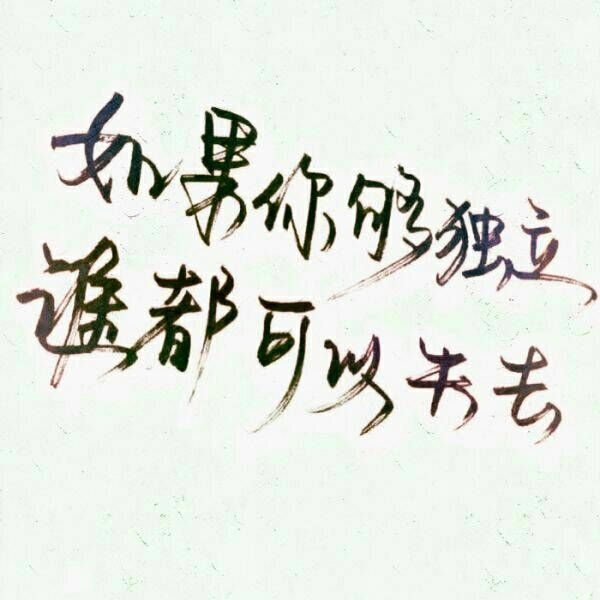 如果你够独立
谁都可以失去